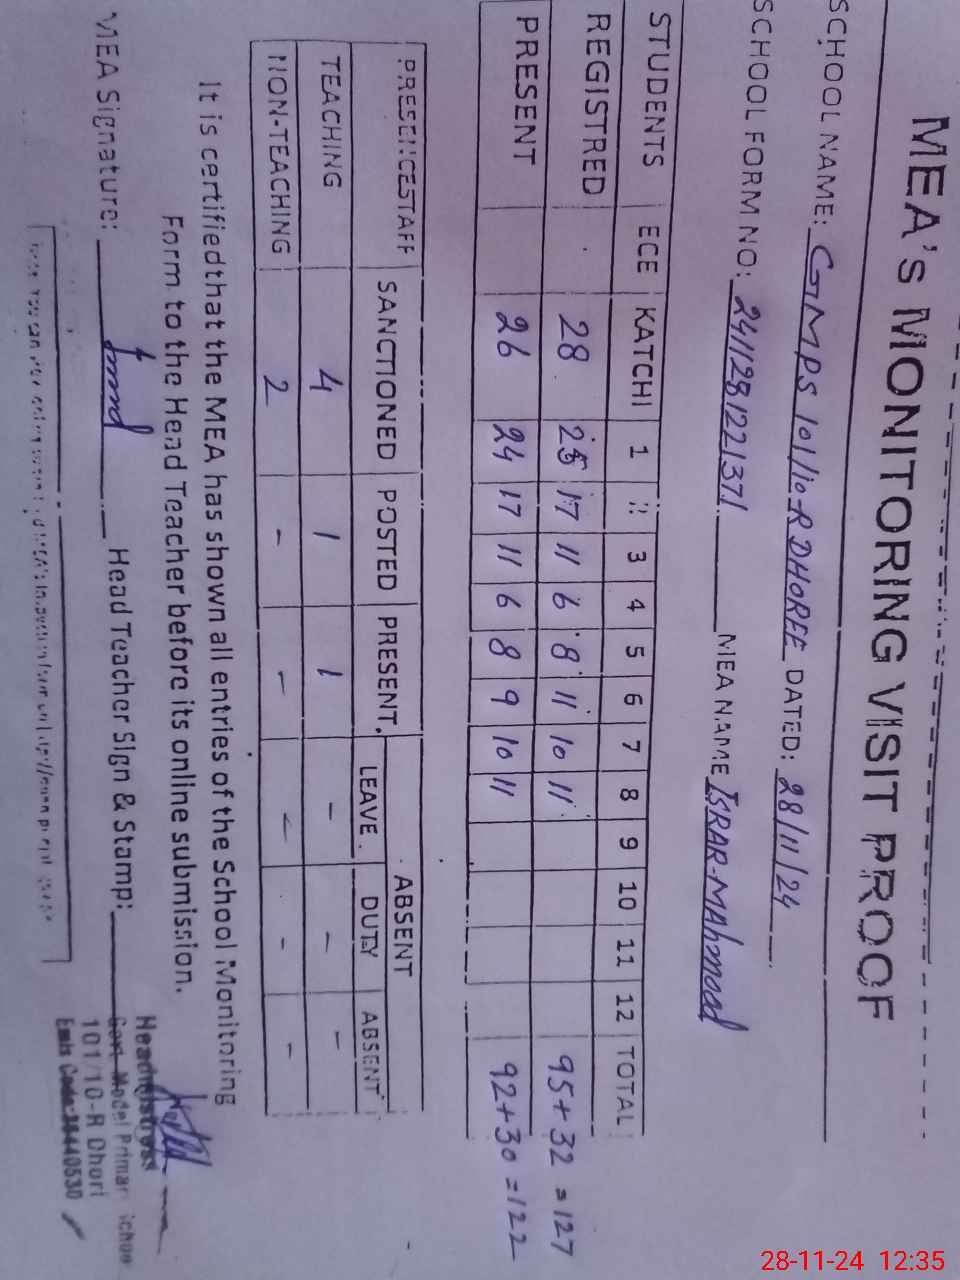 MEA's MONITORING VISIT PROOF
SCHOOL NAME: GMPS 101/10-R DHOREE DATED: 28/11/24
SCHOOL FORM NO: 2411281221371 MEA NAME ISRAR-MAhmood
STUDENTS ECE KATCHI 1 2 3 4 5 6 7 8 9 10 11 12 TOTAL
REGISTRED 28 25 17 11 6 8 11 10 11 95+32 =127
PRESENT 26 24 17 11 6 8 9 10 11 92+30 =122
PRESENCE STAFF SANCTIONED POSTED PRESENT ABSENT
LEAVE DUTY ABSENT
TEACHING 4 1 1 - - -
NON-TEACHING 2 - - - - -
It is certified that the MEA has shown all entries of the School Monitoring
Form to the Head Teacher before its online submission.
MEA Signature: Head Teacher Sign & Stamp:
Headmistress
Govt. Model Primary School
101/10-R Dhori
Emis Code:
28-11-24 12:35